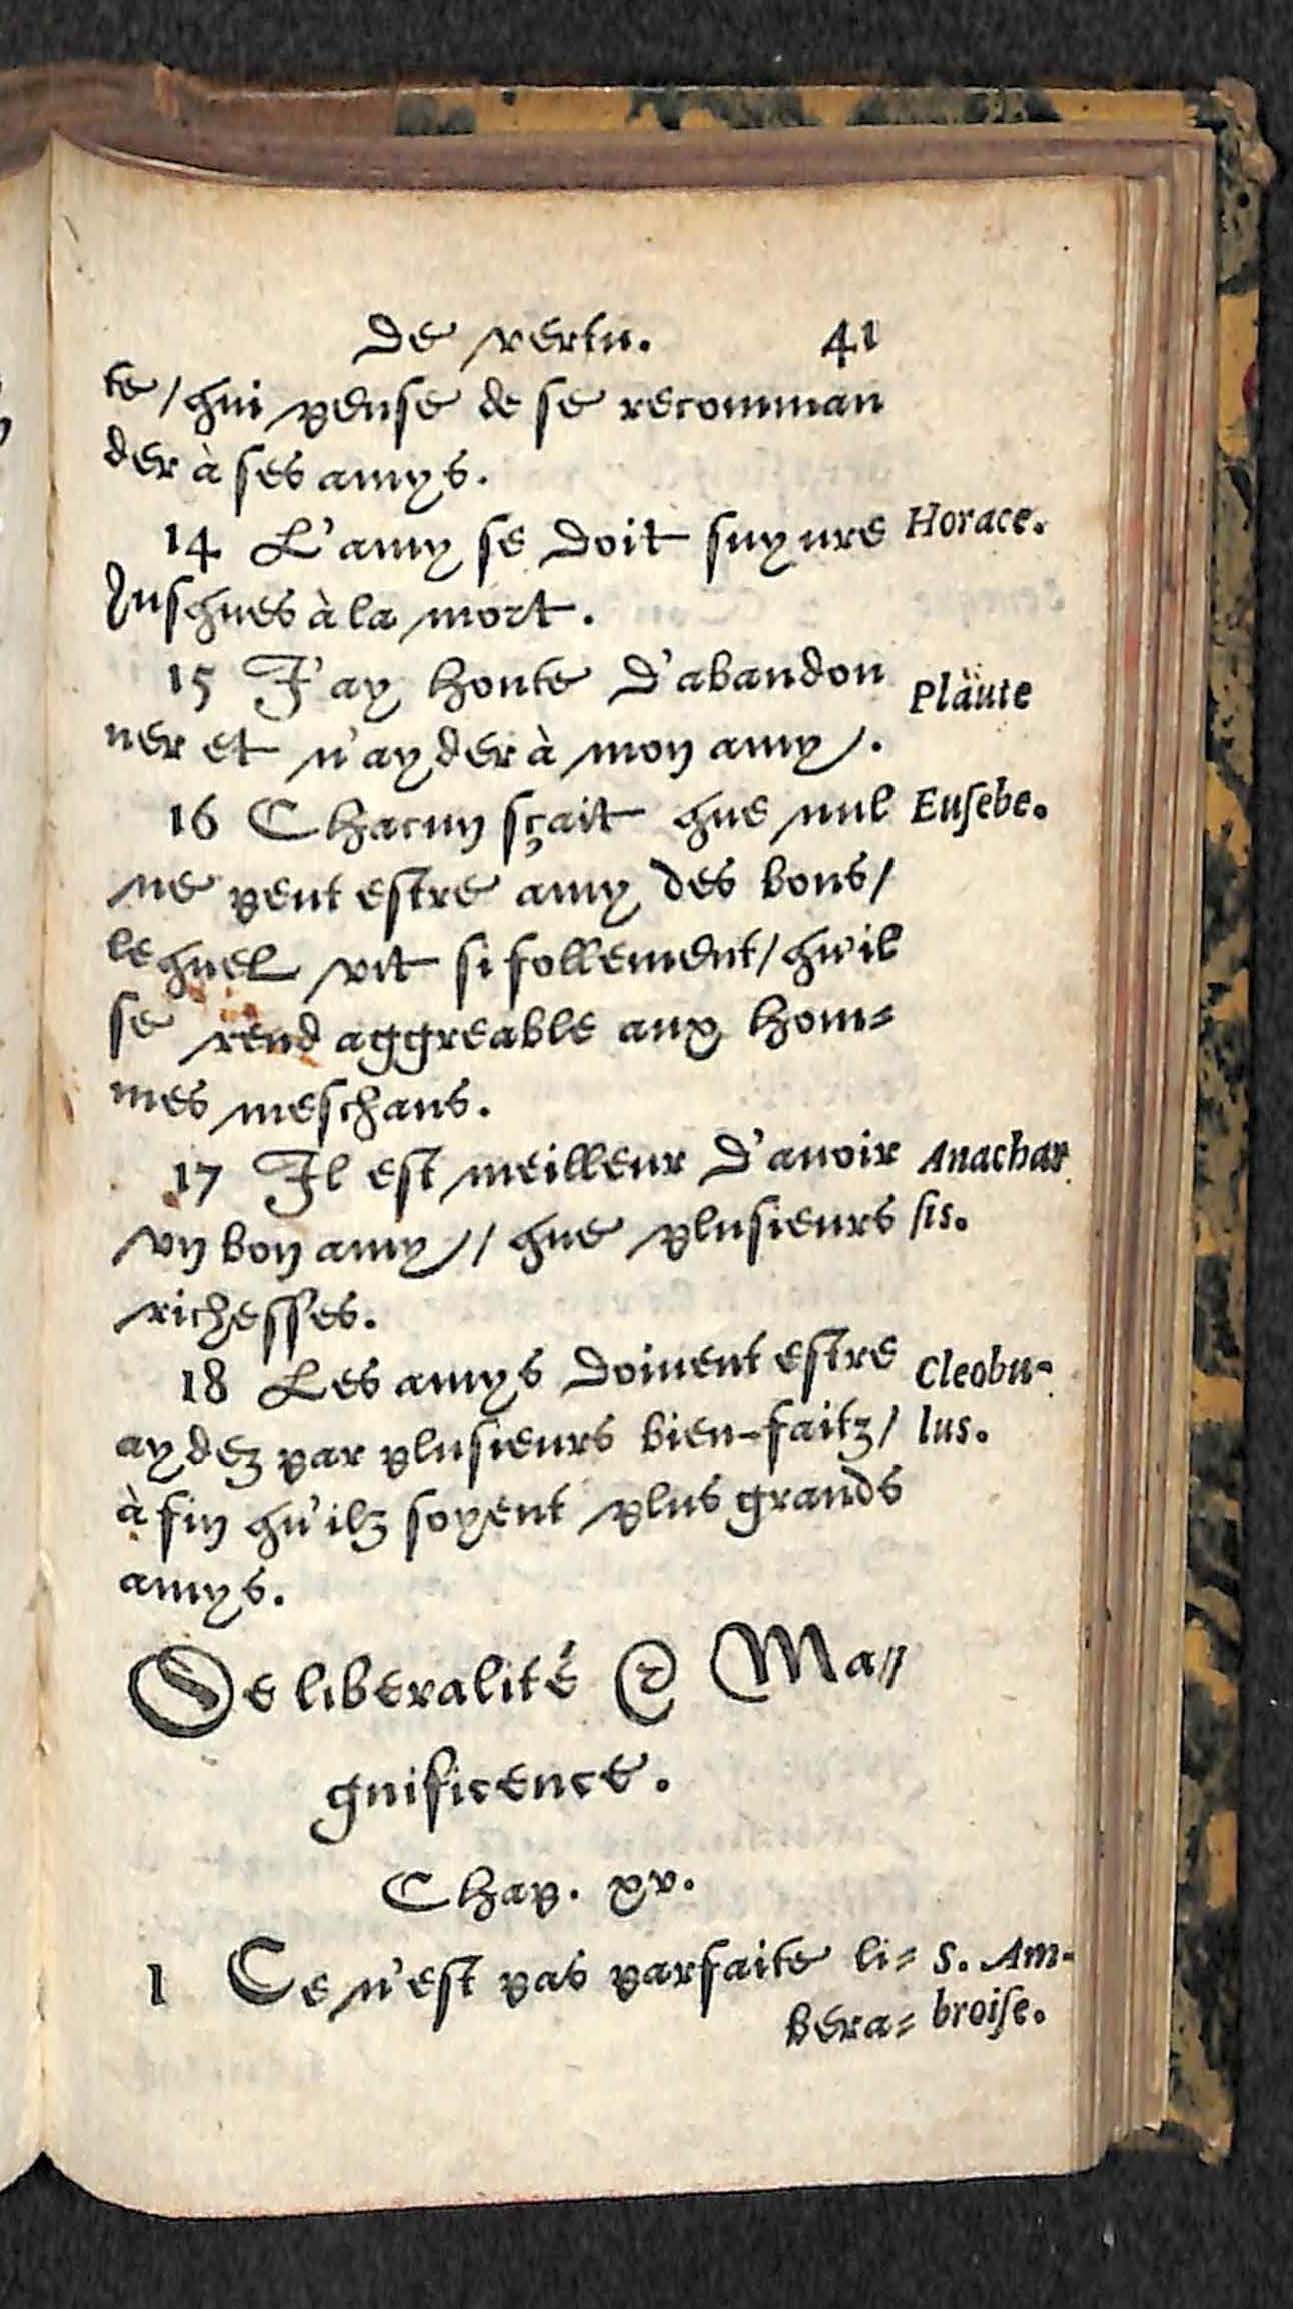 de vertu. 41
te/ qui pense de se recomman
der à ses amys.
14 L'amy se doit suyure Horace.
Jusques à la mort.
15 J'ay honte d'abandon Plaute
ner et n'ayder à mon amy.
16 Chacun sçait que nul Euſebe.
ne peut estre amy des bons/
lequel vit si follement/ qu'il
se rend aggreable aux hom=
mes meschans.
17 Il est meilleur d'auoir Anachar
vn bon amy// que plusieurs ſis.
richesses.
18 Les amys doiuent estre Cleobu-
aydez par plusieurs bien-faitz/ lus.
à fin qu'ilz soyent plus grands
amys.
De liberalité & Ma//
gnificence.
Chap. xv.
1 Ce n'est pas parfaite li= S. Am-
bera= broiſe.